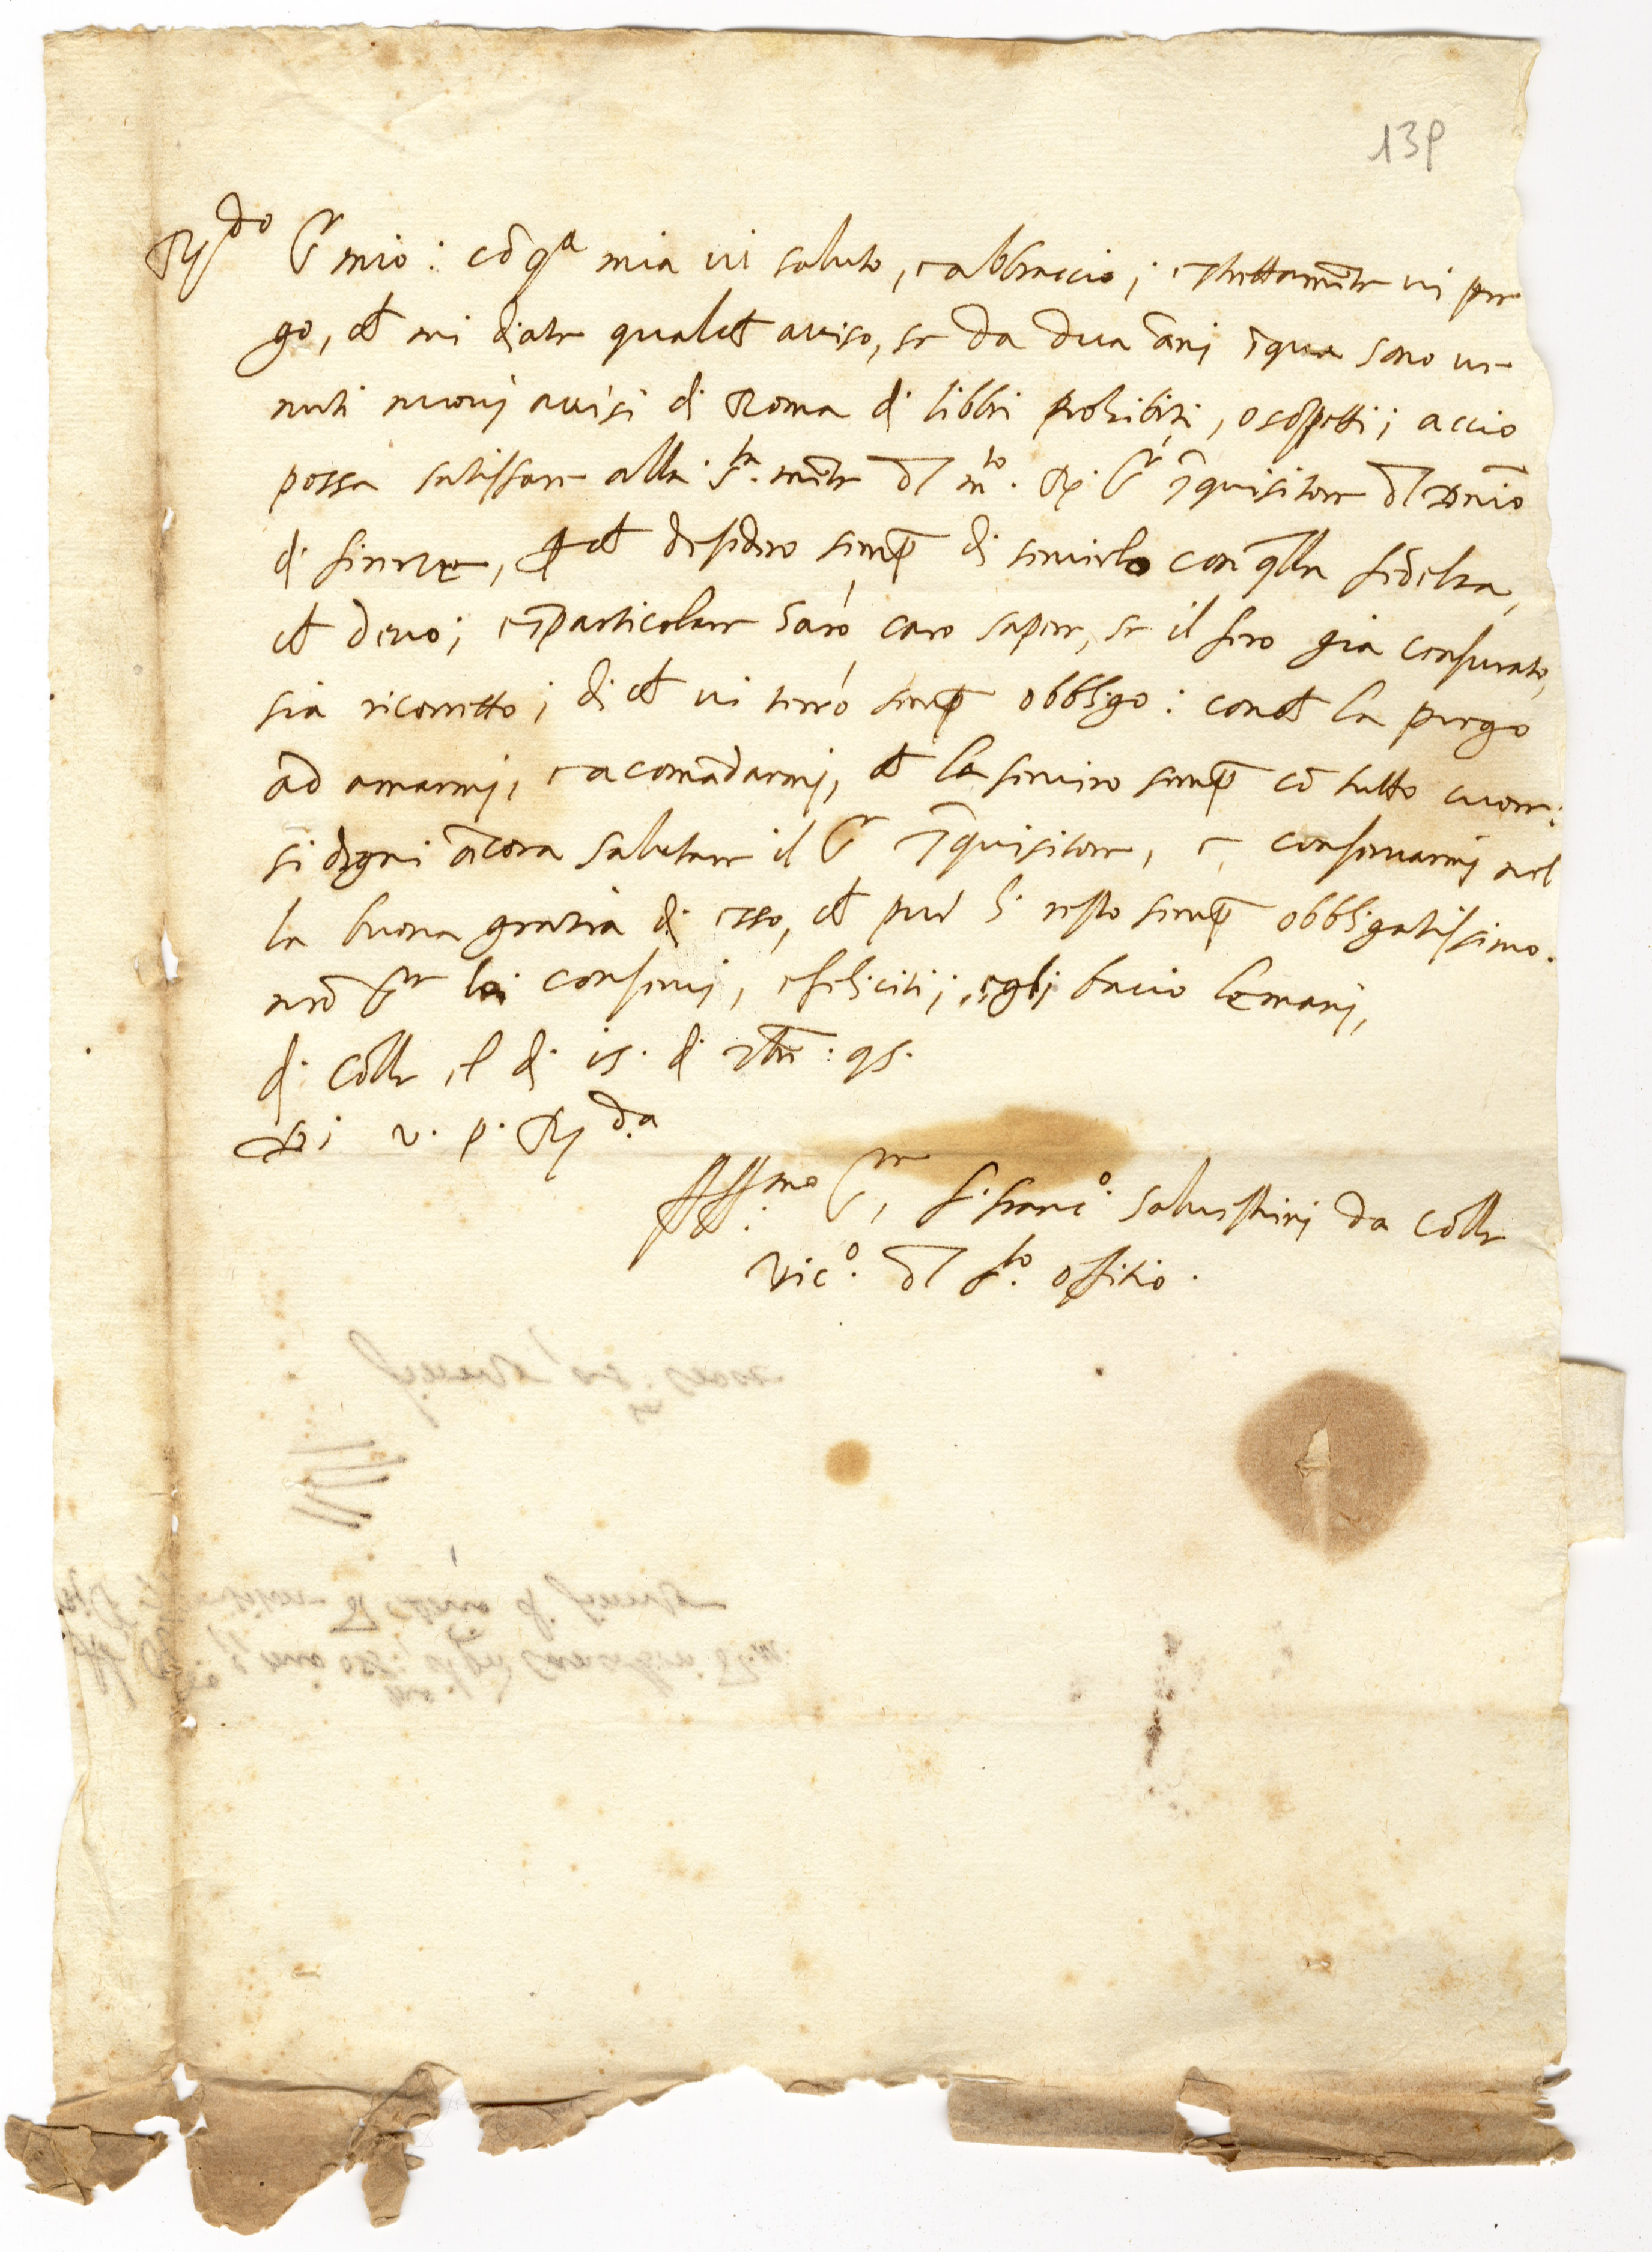 139
R.do Sr mio: cõ qa mia vi saluto, e abbraccio; e strettamẽte vi pre
go, che mi diate qualche aviso, se da dua ãni ĩqua sono ve
nuti nuovi avisi di Roma di libbri prohibiti, o sospetti; accio
possa satisfare alla s.ta mẽte del m.to R. Sr Ĩquisitore del Domĩo
di firenze, che desidero semp di servirlo con qlla fidelta,
che devo; e ĩparticolare sarò caro sapere, se il fero gia censurato,
sia ricorretto; di che vi terrò semp obbligo: conche la prego
ad amarmi, e acomãdarmi, che la serviro semp cõ tutto cuore:
si degni ãcora salutare il Sr Ĩquisitore, e conservarmi nel
la buona gratia di esso, che pur li resto semp obbligatissimo.
nrõ Sre lei conservi, e feliciti; e gli bacio le mani,
di Colle, il di 15. di 7bre: 95.
Di v. p. R.da
Aff.mo Sre, f. franc.o salustrini da Colle
Vic.o del s.to offitio.